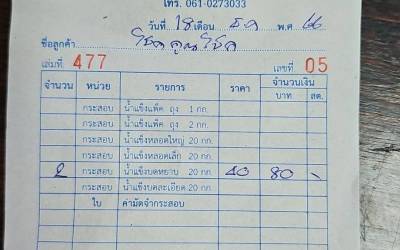 โทร. 061-0273033
วันที่ 18 เดือน ธค พ.ศ 66
ชื่อลูกค้า
เล่มที่ 477 เลขที่ 05
จำนวน หน่วย รายการ ราคา จำนวนเงิน
บาท สต.
กระสอบ น้ำแข็งแพ็ค ถุง 1 กก.
กระสอบ น้ำแข็งแพ็ค ถุง 2 กก.
กระสอบ น้ำแข็งหลอดใหญ่ 20 กก.
กระสอบ น้ำแข็งหลอดเล็ก 20 กก.
2 กระสอบ น้ำแข็งบดหยาบ 20 กก. 40 80 -
กระสอบ น้ำแข็งบดละเอียด 20 กก.
ใบ ค่ามัดจำกระสอบ